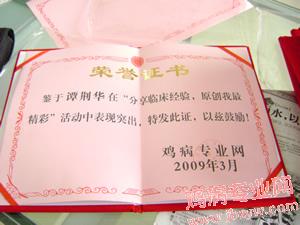 荣誉证书
鉴于谭荆华在“分享临床经验，原创我最
精彩”活动中表现突出，特发此证，以兹鼓励！
鸡病专业网
2009年3月
鸡病专业网